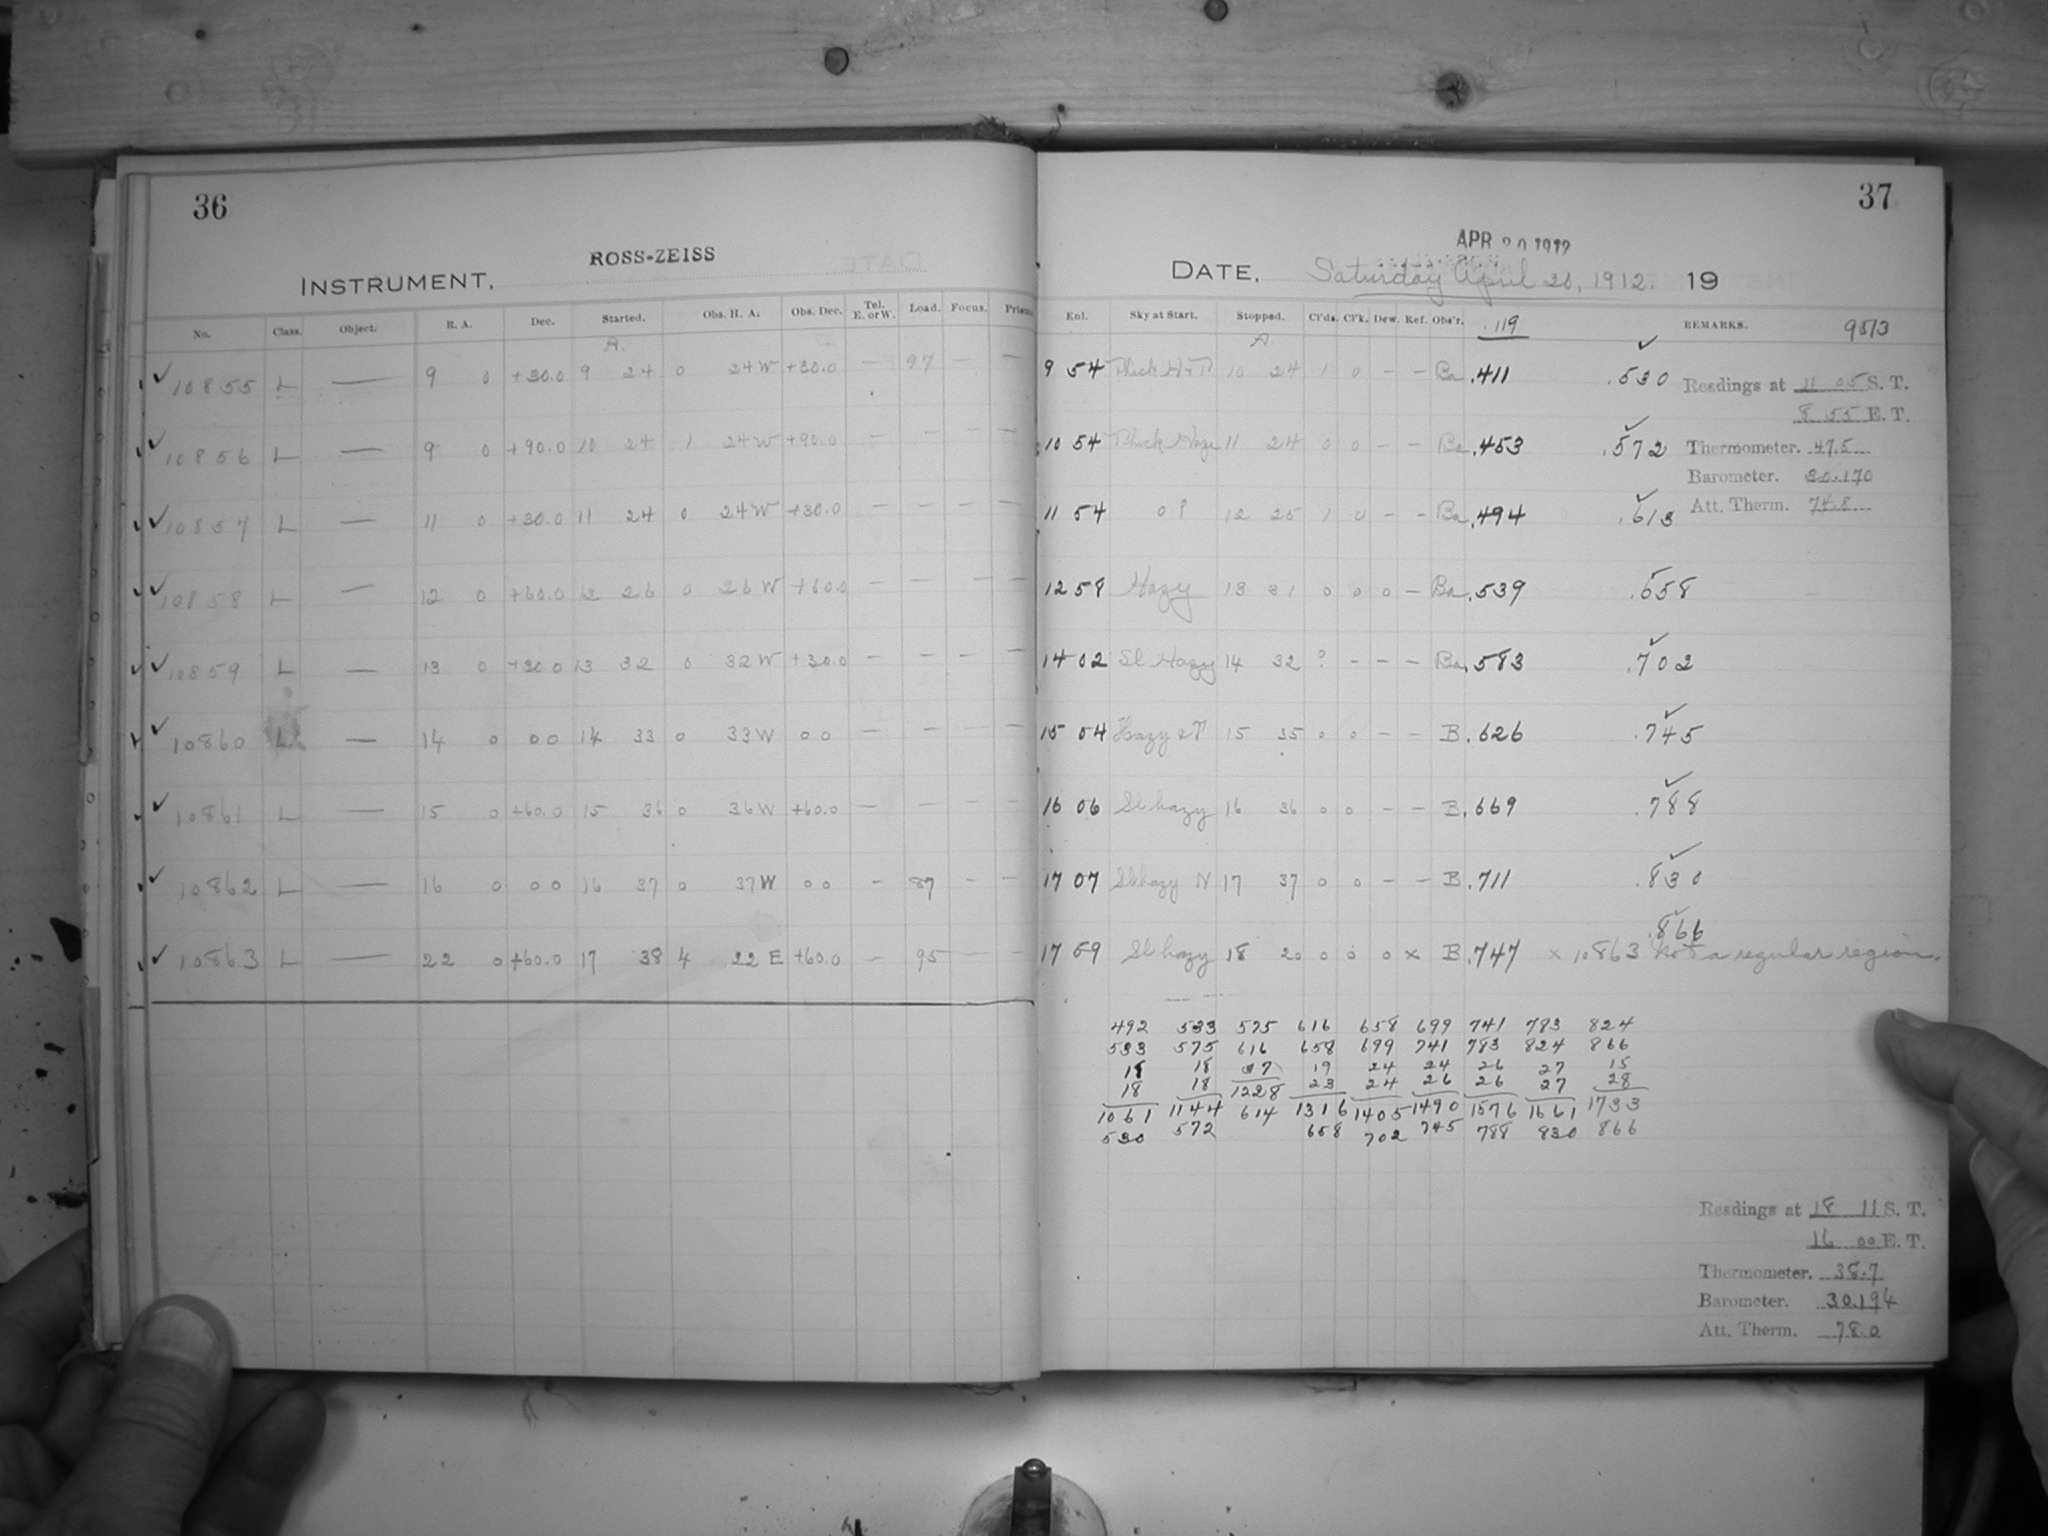 36
ROSS-ZEISS
INSTRUMENT,
No. Class. Object. R. A. Dec. Started. Obs. H. A. Obs. Dec. Tel. E. or W. Load. Focus. Prism
A.
✓ 10855 L — 9 0 +30.0 9 24 0 24 W +30.0 — 97 — —
✓ 10856 L — 9 0 +90.0 10 24 1 24 W +90.0 — — — —
✓ 10857 L — 11 0 +30.0 11 24 0 24 W +30.0 — — — —
✓ 10858 L — 12 0 +60.0 12 26 0 26 W +60.0 — — — —
✓ 10859 L — 13 0 +30.0 13 32 0 32 W +30.0 — — — —
✓ 10860 L — 14 0 00 14 33 0 33 W 00 — — — —
✓ 10861 L — 15 0 +60.0 15 36 0 36 W +60.0 — — — —
✓ 10862 L — 16 0 00 16 37 0 37 W 00 — 87 — —
✓ 10863 L — 22 0 +60.0 17 38 4 22 E +60.0 — 95 — —
37
APR 20 1912
DATE, Saturday April 20, 1912. 19
Ent. Sky at Start. Stopped. Cl'ds. Cl'k. Dew. Ref. Obs'r. .119 REMARKS. 9513
A
9 54 Thick 10 24 1 0 — — Ba .411 .530
10 54 Thick Haze 11 24 0 0 — — Ba .453 .572
11 54 0? 12 25 1 0 — — Ba .494 .613
12 58 Hazy 13 31 0 0 0 — Ba .539 .658
14 02 Sl Hazy 14 32 ? — — — Ba .583 .702
15 04 Hazy 15 35 0 0 — — B .626 .745
16 06 Sl hazy 16 36 0 0 — — B .669 .788
17 07 Sl hazy N 17 37 0 0 — — B .711 .830
.866
17 59 Sl hazy 18 20 0 0 0 x B .747 x 10863 not a regular region.
Readings at 11 05 S. T.
8 55 E. T.
Thermometer. 47.5
Barometer. 30.170
Att. Therm. 74.8
492 533 575 616 658 699 741 783 824
533 575 616 658 699 741 783 824 866
18 18 37 19 24 24 26 27 15
18 18 1228 23 24 26 26 27 28
1061 1144 614 1316 1405 1490 1576 1661 1733
530 572 658 702 745 788 830 866
Readings at 18 11 S. T.
16 00 E. T.
Thermometer. 38.7
Barometer. 30.194
Att. Therm. 78.0